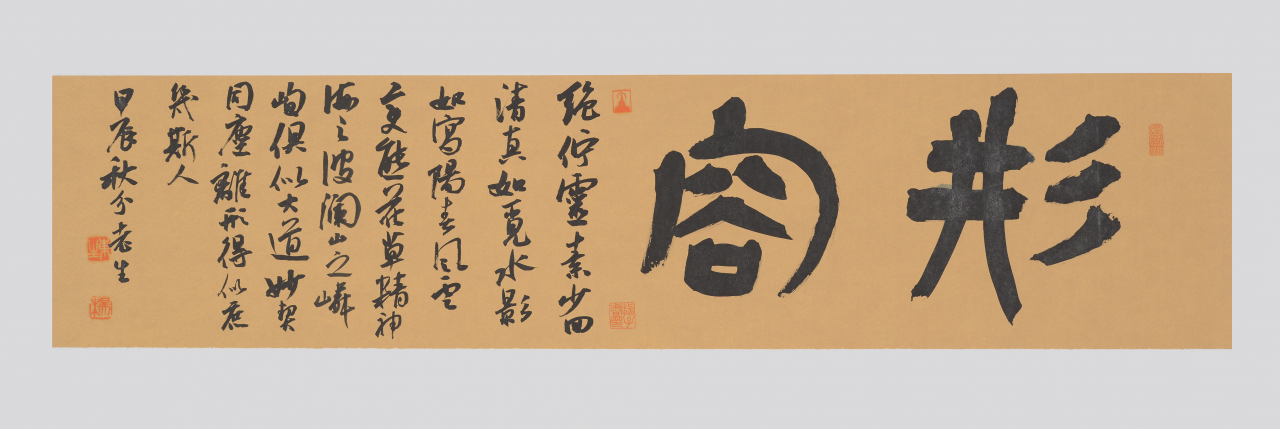 形容
絶佇靈素少回
清真如覓水影
如寫陽春風雲
變態花草精神
海之波瀾山之嶙
峋俱似大道妙契
同塵離形得似庶
幾斯人
甲辰秋分老生